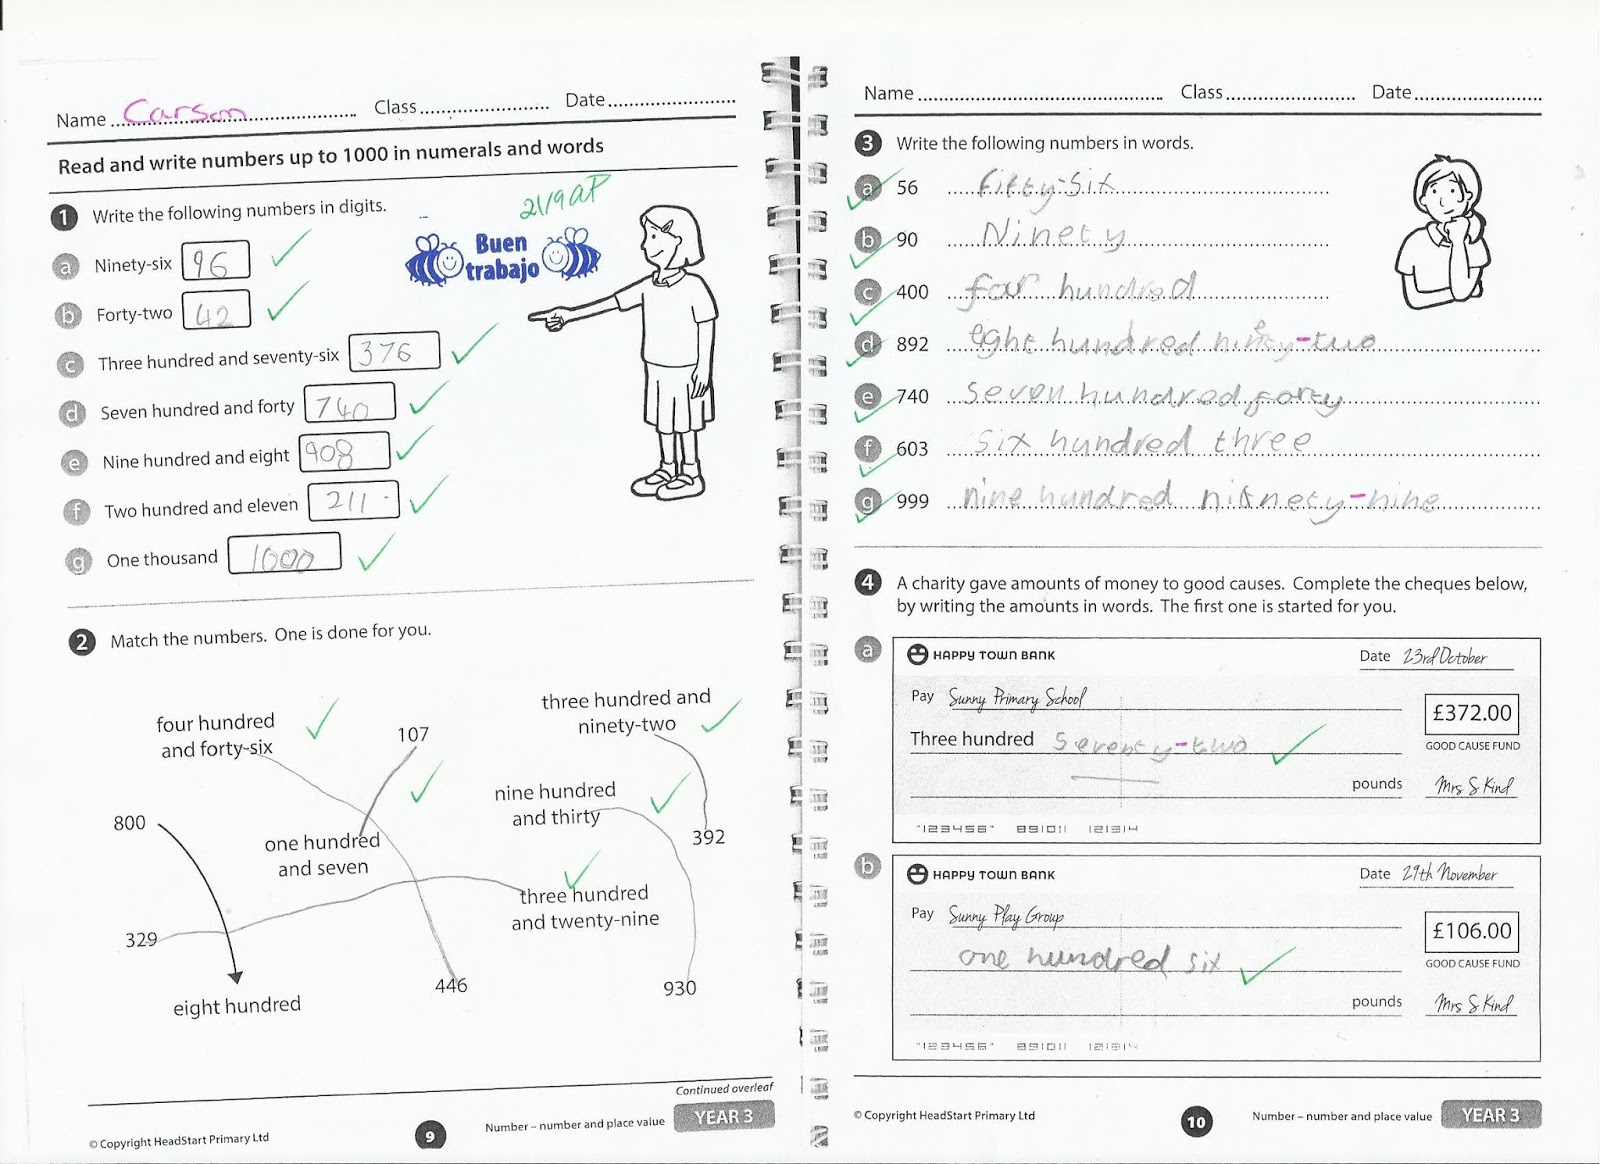 Name Carson Class Date
Read and write numbers up to 1000 in numerals and words
1 Write the following numbers in digits.
21/9 aP
Buen
trabajo
a Ninety-six 96
b Forty-two 42
c Three hundred and seventy-six 376
d Seven hundred and forty 740
e Nine hundred and eight 908
f Two hundred and eleven 211
g One thousand 1000
2 Match the numbers. One is done for you.
four hundred
and forty-six
107
three hundred and
ninety-two
800
one hundred
and seven
nine hundred
and thirty
392
329
three hundred
and twenty-nine
eight hundred
446
930
Continued overleaf
© Copyright HeadStart Primary Ltd
9
Number – number and place value
YEAR 3
Name Class Date
3 Write the following numbers in words.
a 56 fifty-six
b 90 Ninety
c 400 four hundred
d 892 eight hundred ninety-two
e 740 seven hundred forty
f 603 six hundred three
g 999 nine hundred ninety-nine
4 A charity gave amounts of money to good causes. Complete the cheques below,
by writing the amounts in words. The first one is started for you.
a
HAPPY TOWN BANK
Date 23rd October
Pay Sunny Primary School
£372.00
Three hundred seventy-two
GOOD CAUSE FUND
pounds
Mrs S Kind
"123456" 891011 121314
b
HAPPY TOWN BANK
Date 29th November
Pay Sunny Play Group
£106.00
one hundred six
GOOD CAUSE FUND
pounds
Mrs S Kind
"123456" 891011 121314
© Copyright HeadStart Primary Ltd
10
Number – number and place value
YEAR 3